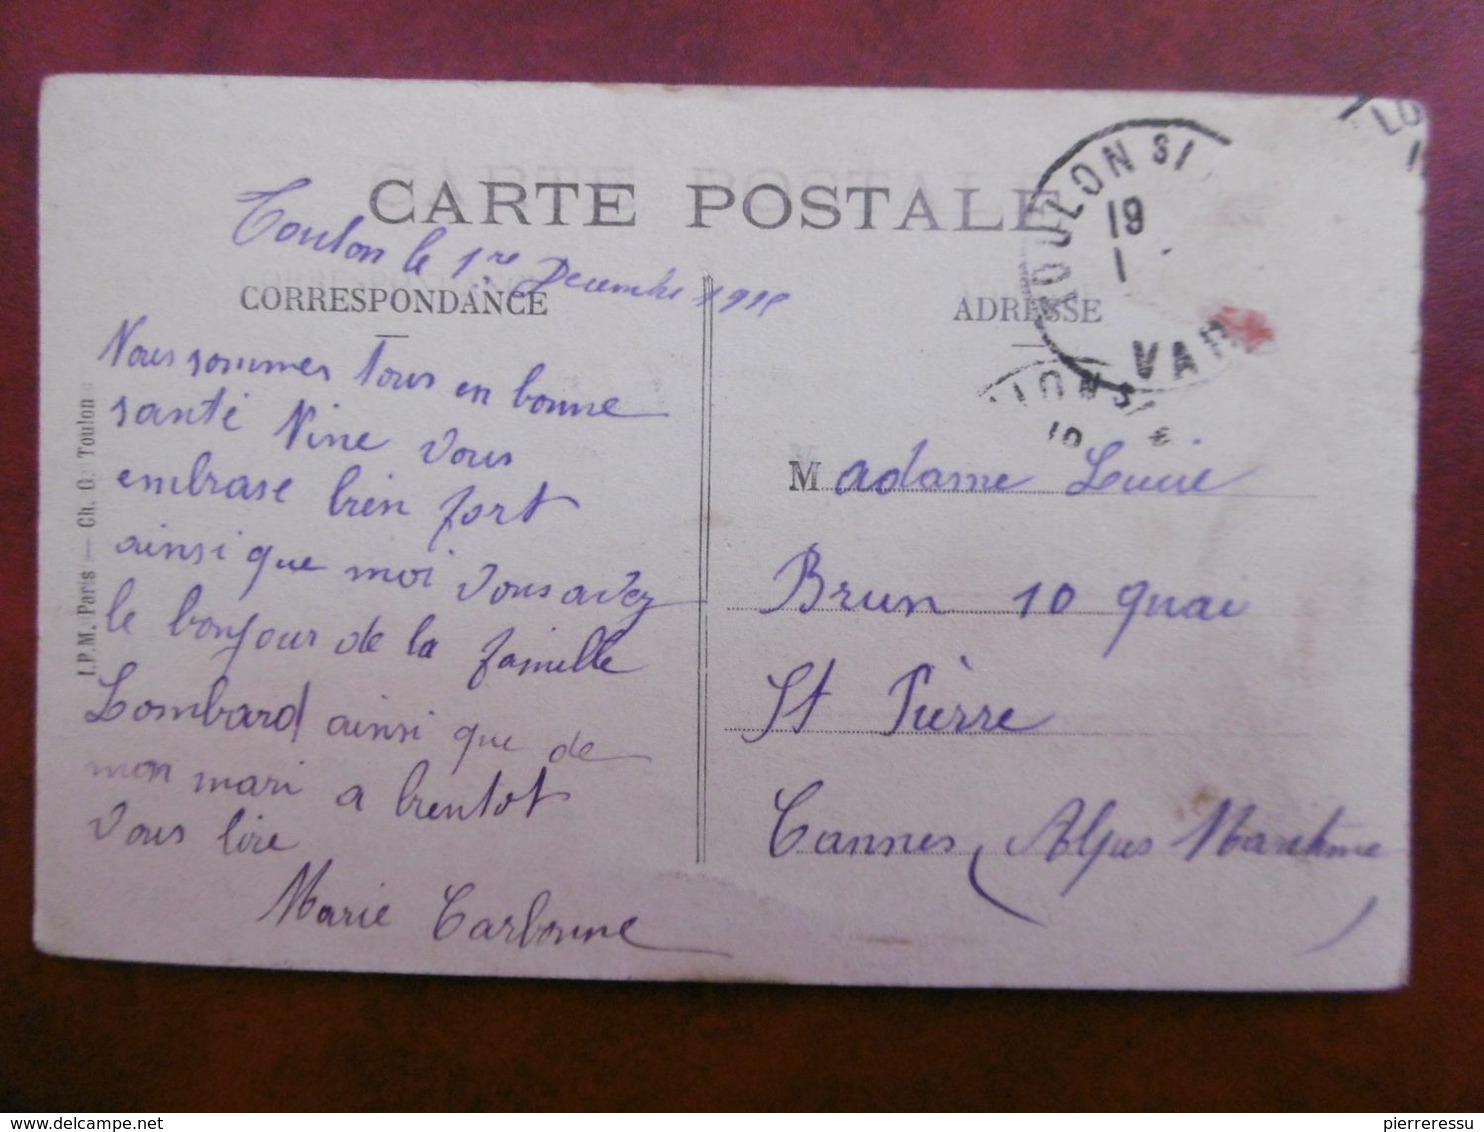 CARTE POSTALE
Toulon le 1re Decembre
CORRESPONDANCE
Nous sommes tous en bonne
santé Nine vous
embrase bien fort
ainsi que moi vous avez
le bonjour de la famille
Lombard ainsi que de
mon mari a bientot
vous lire
Marie Carbonne
I.P.M. Paris — Ch. O. Toulon
ADRESSE
TOULON SI
19
1
VAR
LO
LON S
Madame Lucie
Brun 10 quai
St Pierre
Cannes (Alpes Maritime)
pierreressu